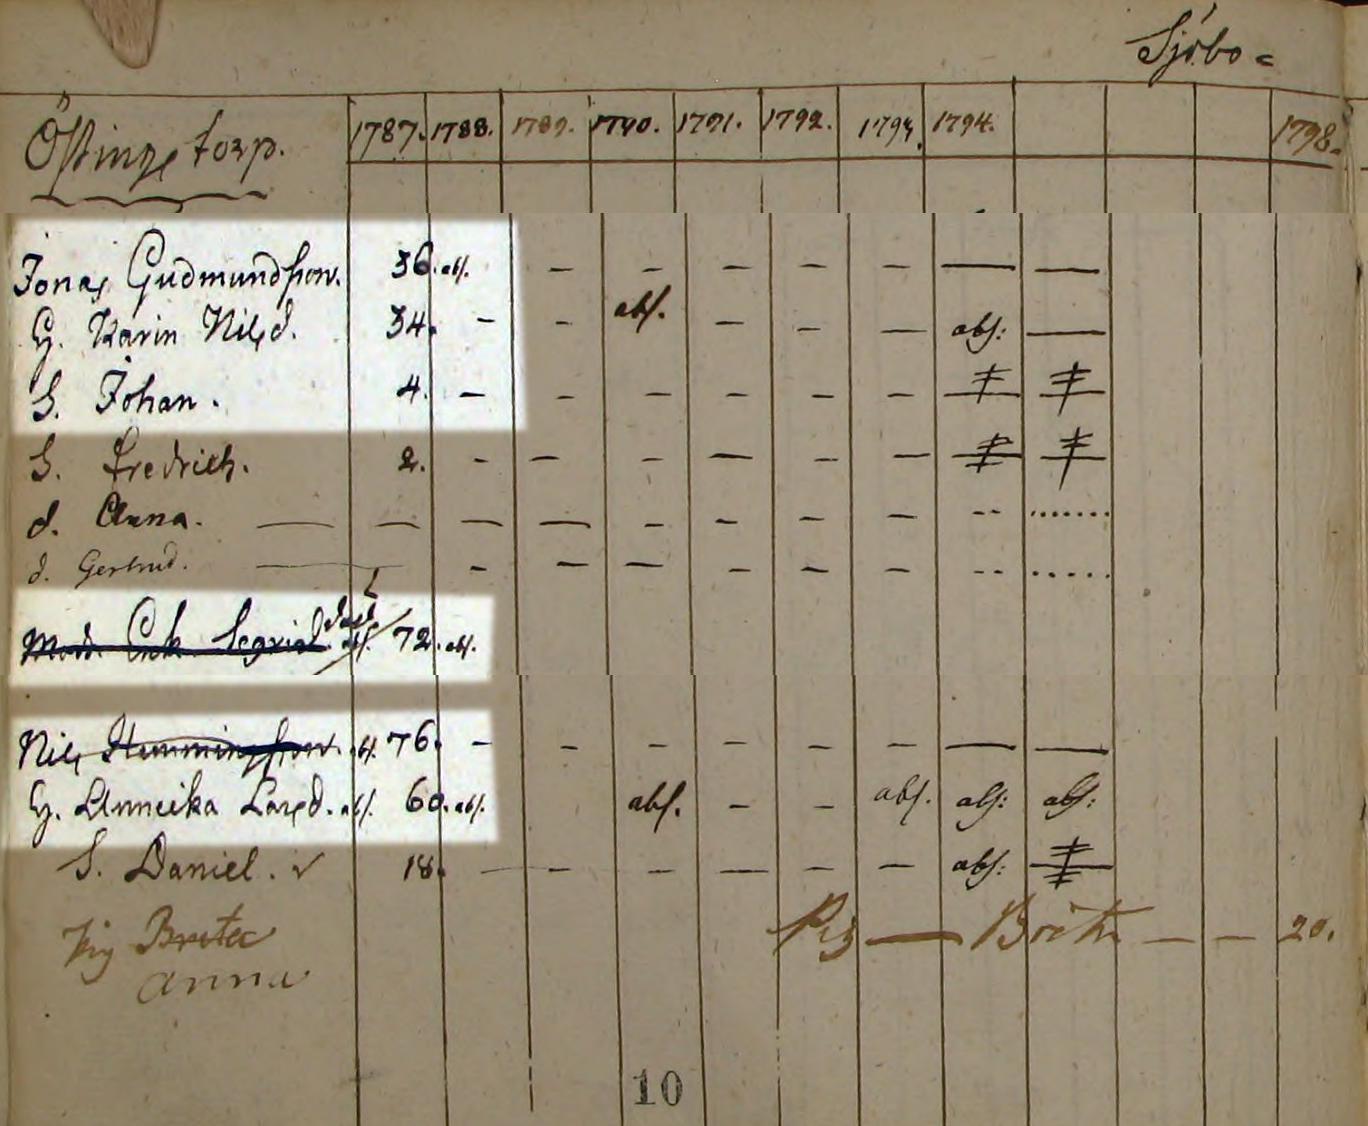 Sjöbo =
Östinge torp. 1787. 1788. 1789. 1790. 1791. 1792. 1793. 1794. 1798.
Jonas Gudmundsson. 36. abs. – – – – – — —
H. Karin Nilsd. 34. – – abs. – – — abs: —
S. Johan. 4. – – – – – –
S. Fredrich. 2. – — – — – –
d. Anna. — — — — – – – – -- .......
d. Gertrud. — – – — – – – -- .....
Mod. 72. abs.
Nils Hemmingsson. abs. 76. – – – – – – — —
H. Annicka Larsd. abs. 60. abs. abs. – – abs. abs: abs:
S. Daniel. 18. — – – — – – abs:
Pig Britta Pig — Britta — — 20.
Anna
10